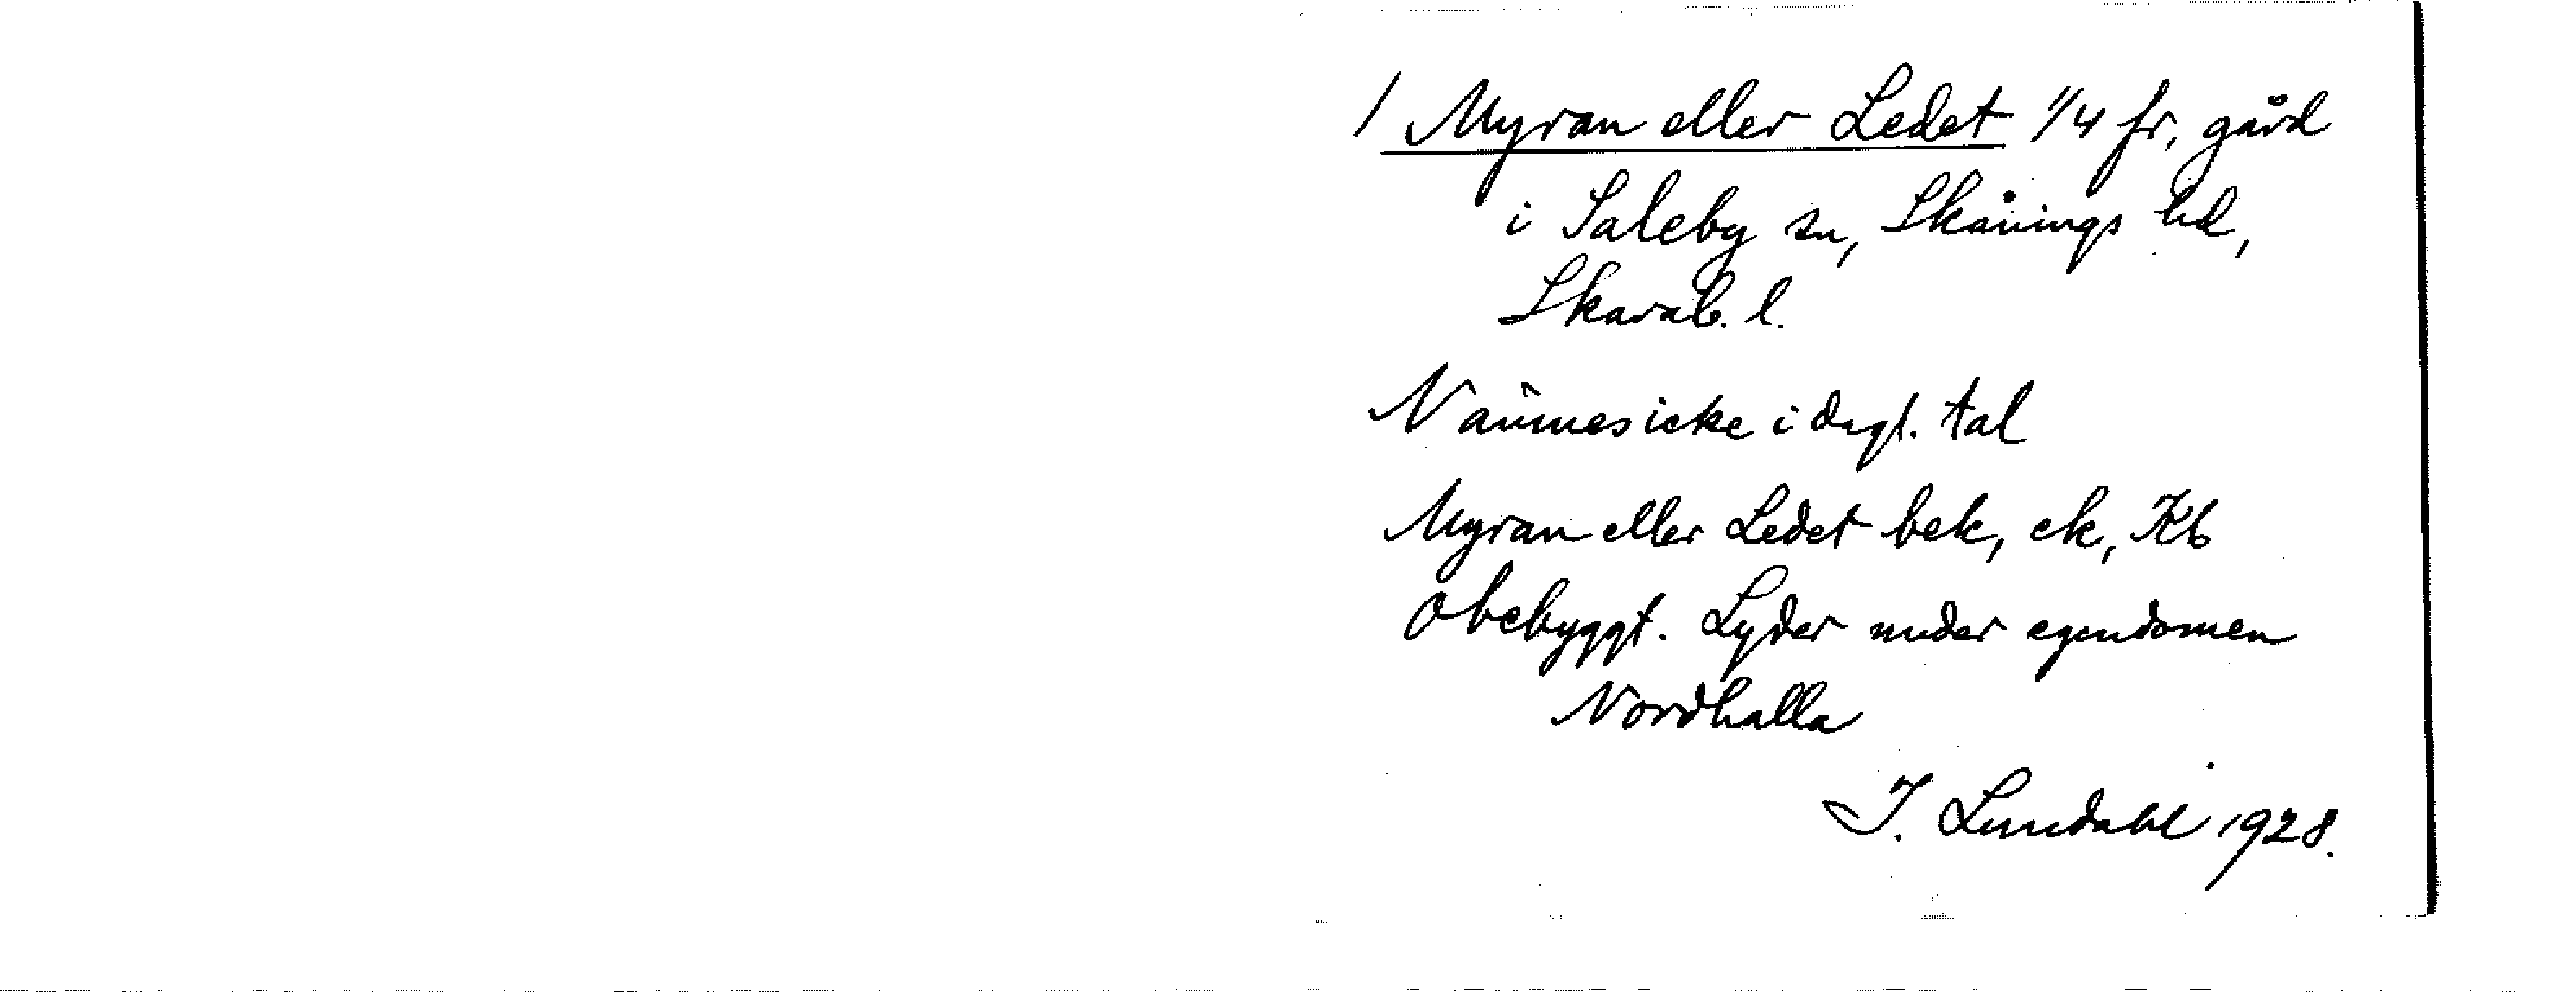 / Myran eller Ledet 1/4 fr, gård
i Saleby sn, Skånings hd,
Skarab. l.
Nämnes icke i dagl. tal
Myran eller Ledet bek, ek, Kb
Obebyggt. Lyder under egendomen
Nordhalla
I. Lundahl 1928.